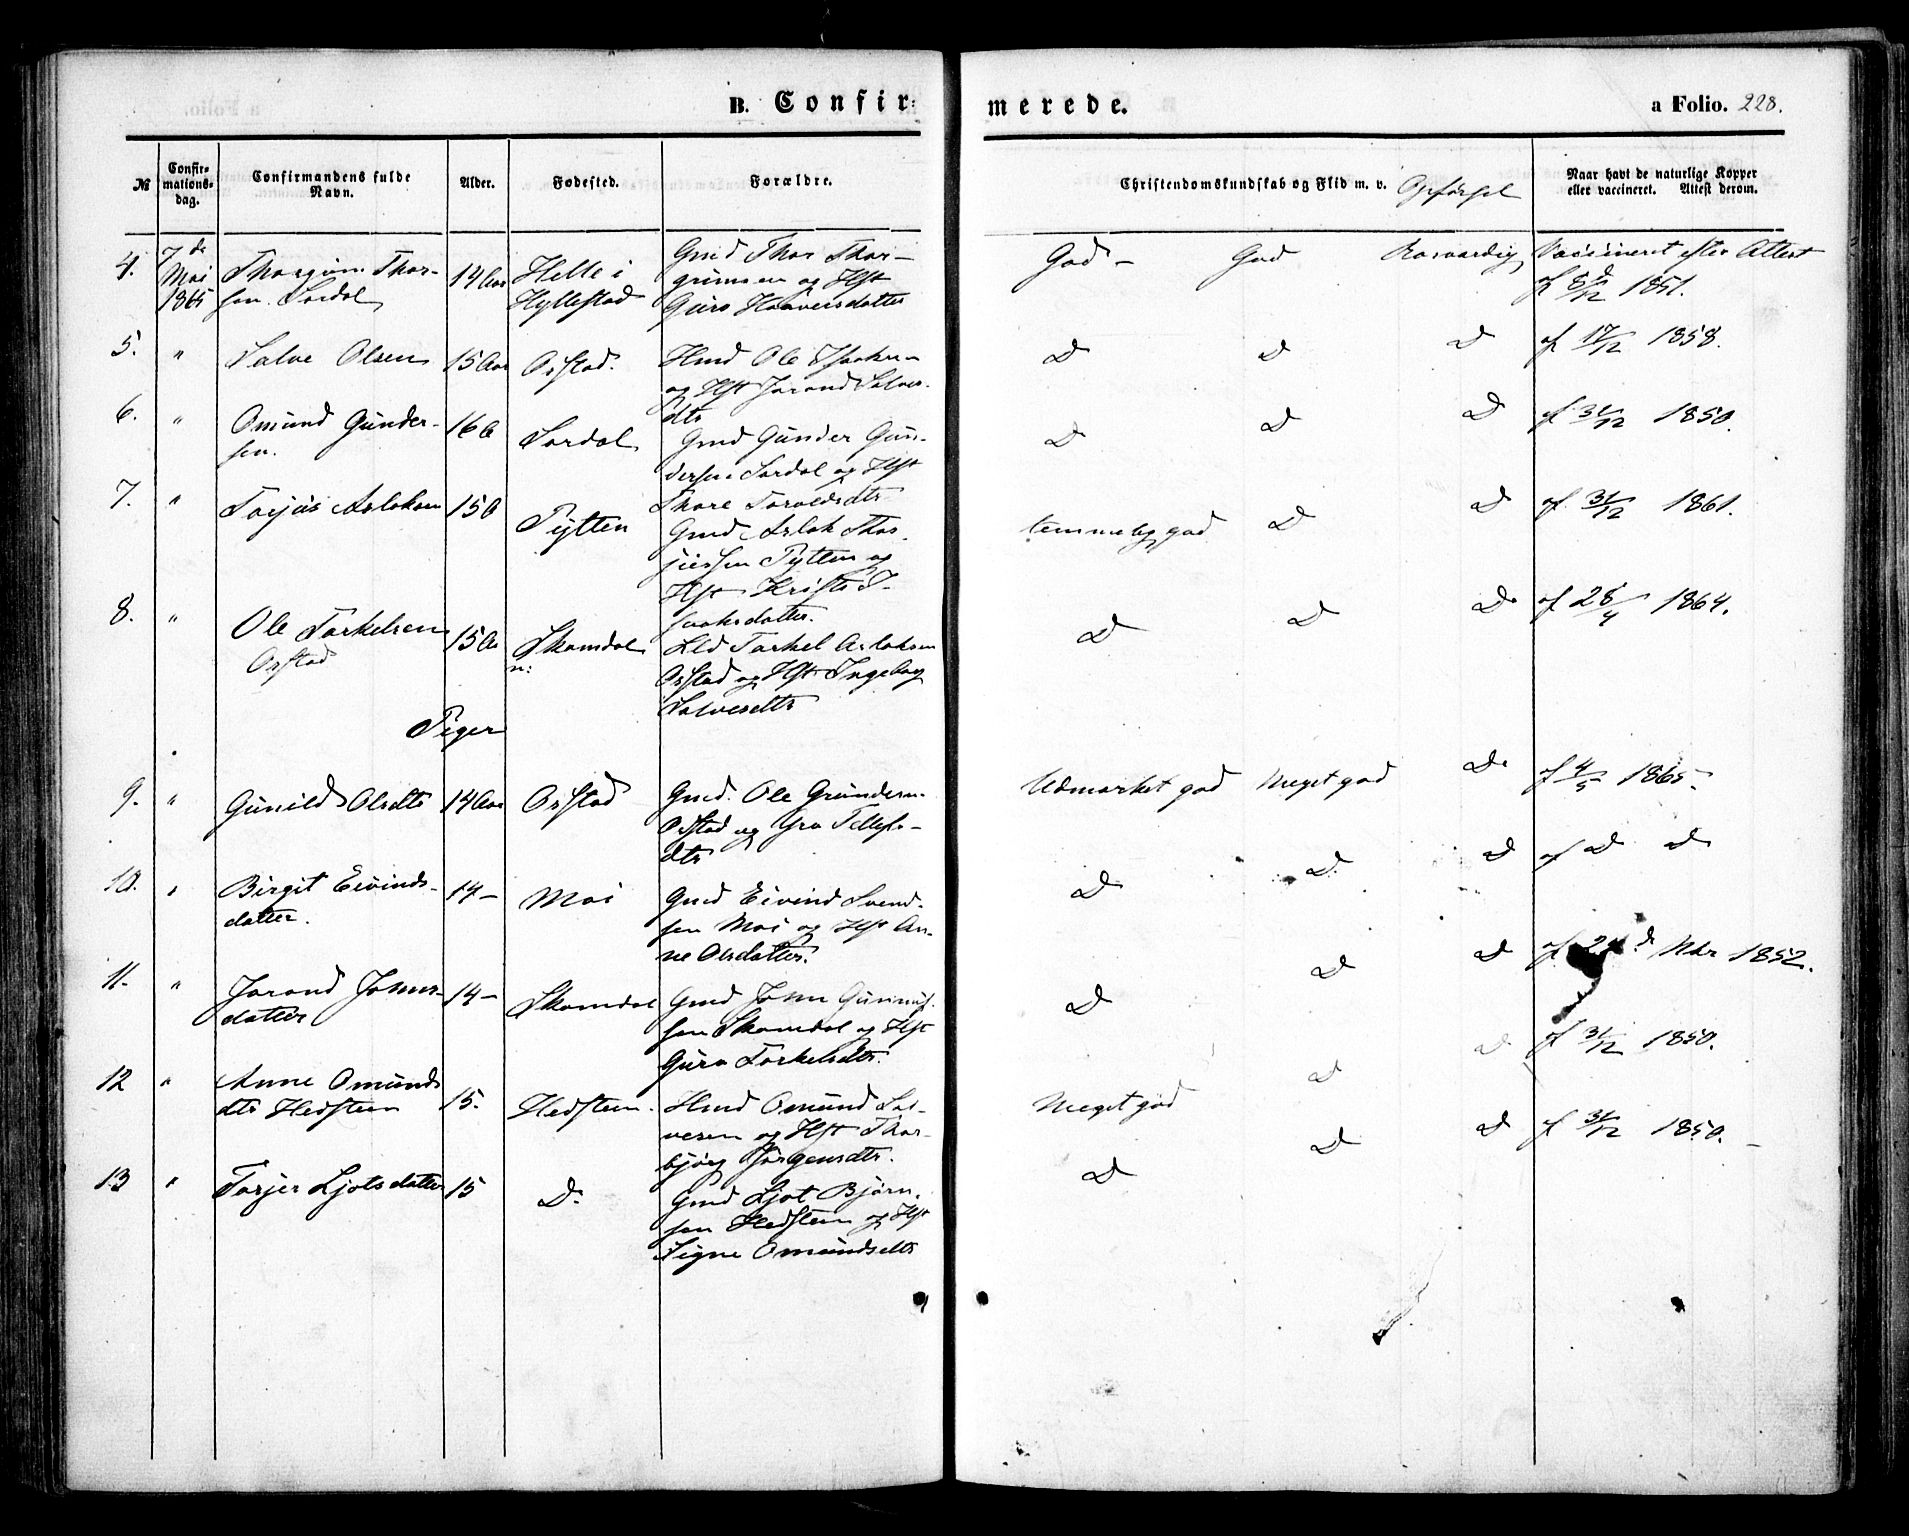 B. Confir:
merede.
a Folio. 228.
№
Confir=
mations=
dag.
Confirmandens fulde
Navn.
Alder.
Fødested.
Forældre.
Christendomskundskab og Flid m. v. Opførsel
Naar havt de naturlige Kopper
eller vaccineret. Attest derom.
4. 7de Mai 1865
Thorgrim Thor-
sen Sordal
14 Aar
Helle i
Hyllestad
Gmd Thor Thor-
grimsen og Hst
Guro Haaversdatter
God - God Rosværdig Vaccineret efter Attest
af 1851.
5. " Salve Olsen 15 Aar Osstad. Hmd Ole
og Hst Jorand Salves-
dtr
D D D af 17/12 1858.
6. " Omund Gunder-
sen.
16 A Sordal Gmd Gunder Gun-
dersen Sordal og Hst
Thore Toroldsdtr
D D D af 31/12 1850.
7. " Torjus Aslaksen 15 A Pytten
Gmd Aslak Thor-
jussen Pytten og
Hst Kristi I-
saaksdatter.
temmelig god D D af 31/12 1861.
8. " Ole Torkelsen
Osstad
15 Aar Skomdal
n:
Lld Torkel Aslaksen
Osstad og Hst Ingeborg
Salvesdtr
D D D af 28/4 1864.
Piger
9. " Gunild Olsdtr 14 Aar Osstad Gmd. Ole Grundesen
Osstad og Gro Tellefs-
dtr
Udmærket god Meget god D. af 4/5 1865.
10. " Birgit Eivinds-
datter.
14 - Moi Gmd Eivind Svend-
sen Moi og Hst An-
ne Olsdatter.
D D D af D D
11. " Jorand Johns-
datter
14 - Skomdal Gmd John Gunnuf-
sen Skomdal og Hst
Guro Torkelsdtr.
D D D af 24de Nbr 1852.
12 " Anne Omunds
dtr Hedsteen
15. Hedsteen. Hmd Omund Sal-
vesen og Hst Thor-
bjørg Jørgensdtr.
Meget god D D af 31/12 1850.
13 " Torjer Ljotsdatter 15 D. Gmd Ljot Bjørn-
sen Hedsteen og Hst
Signe Omundsdtr
D D D af 31/12 1850. -